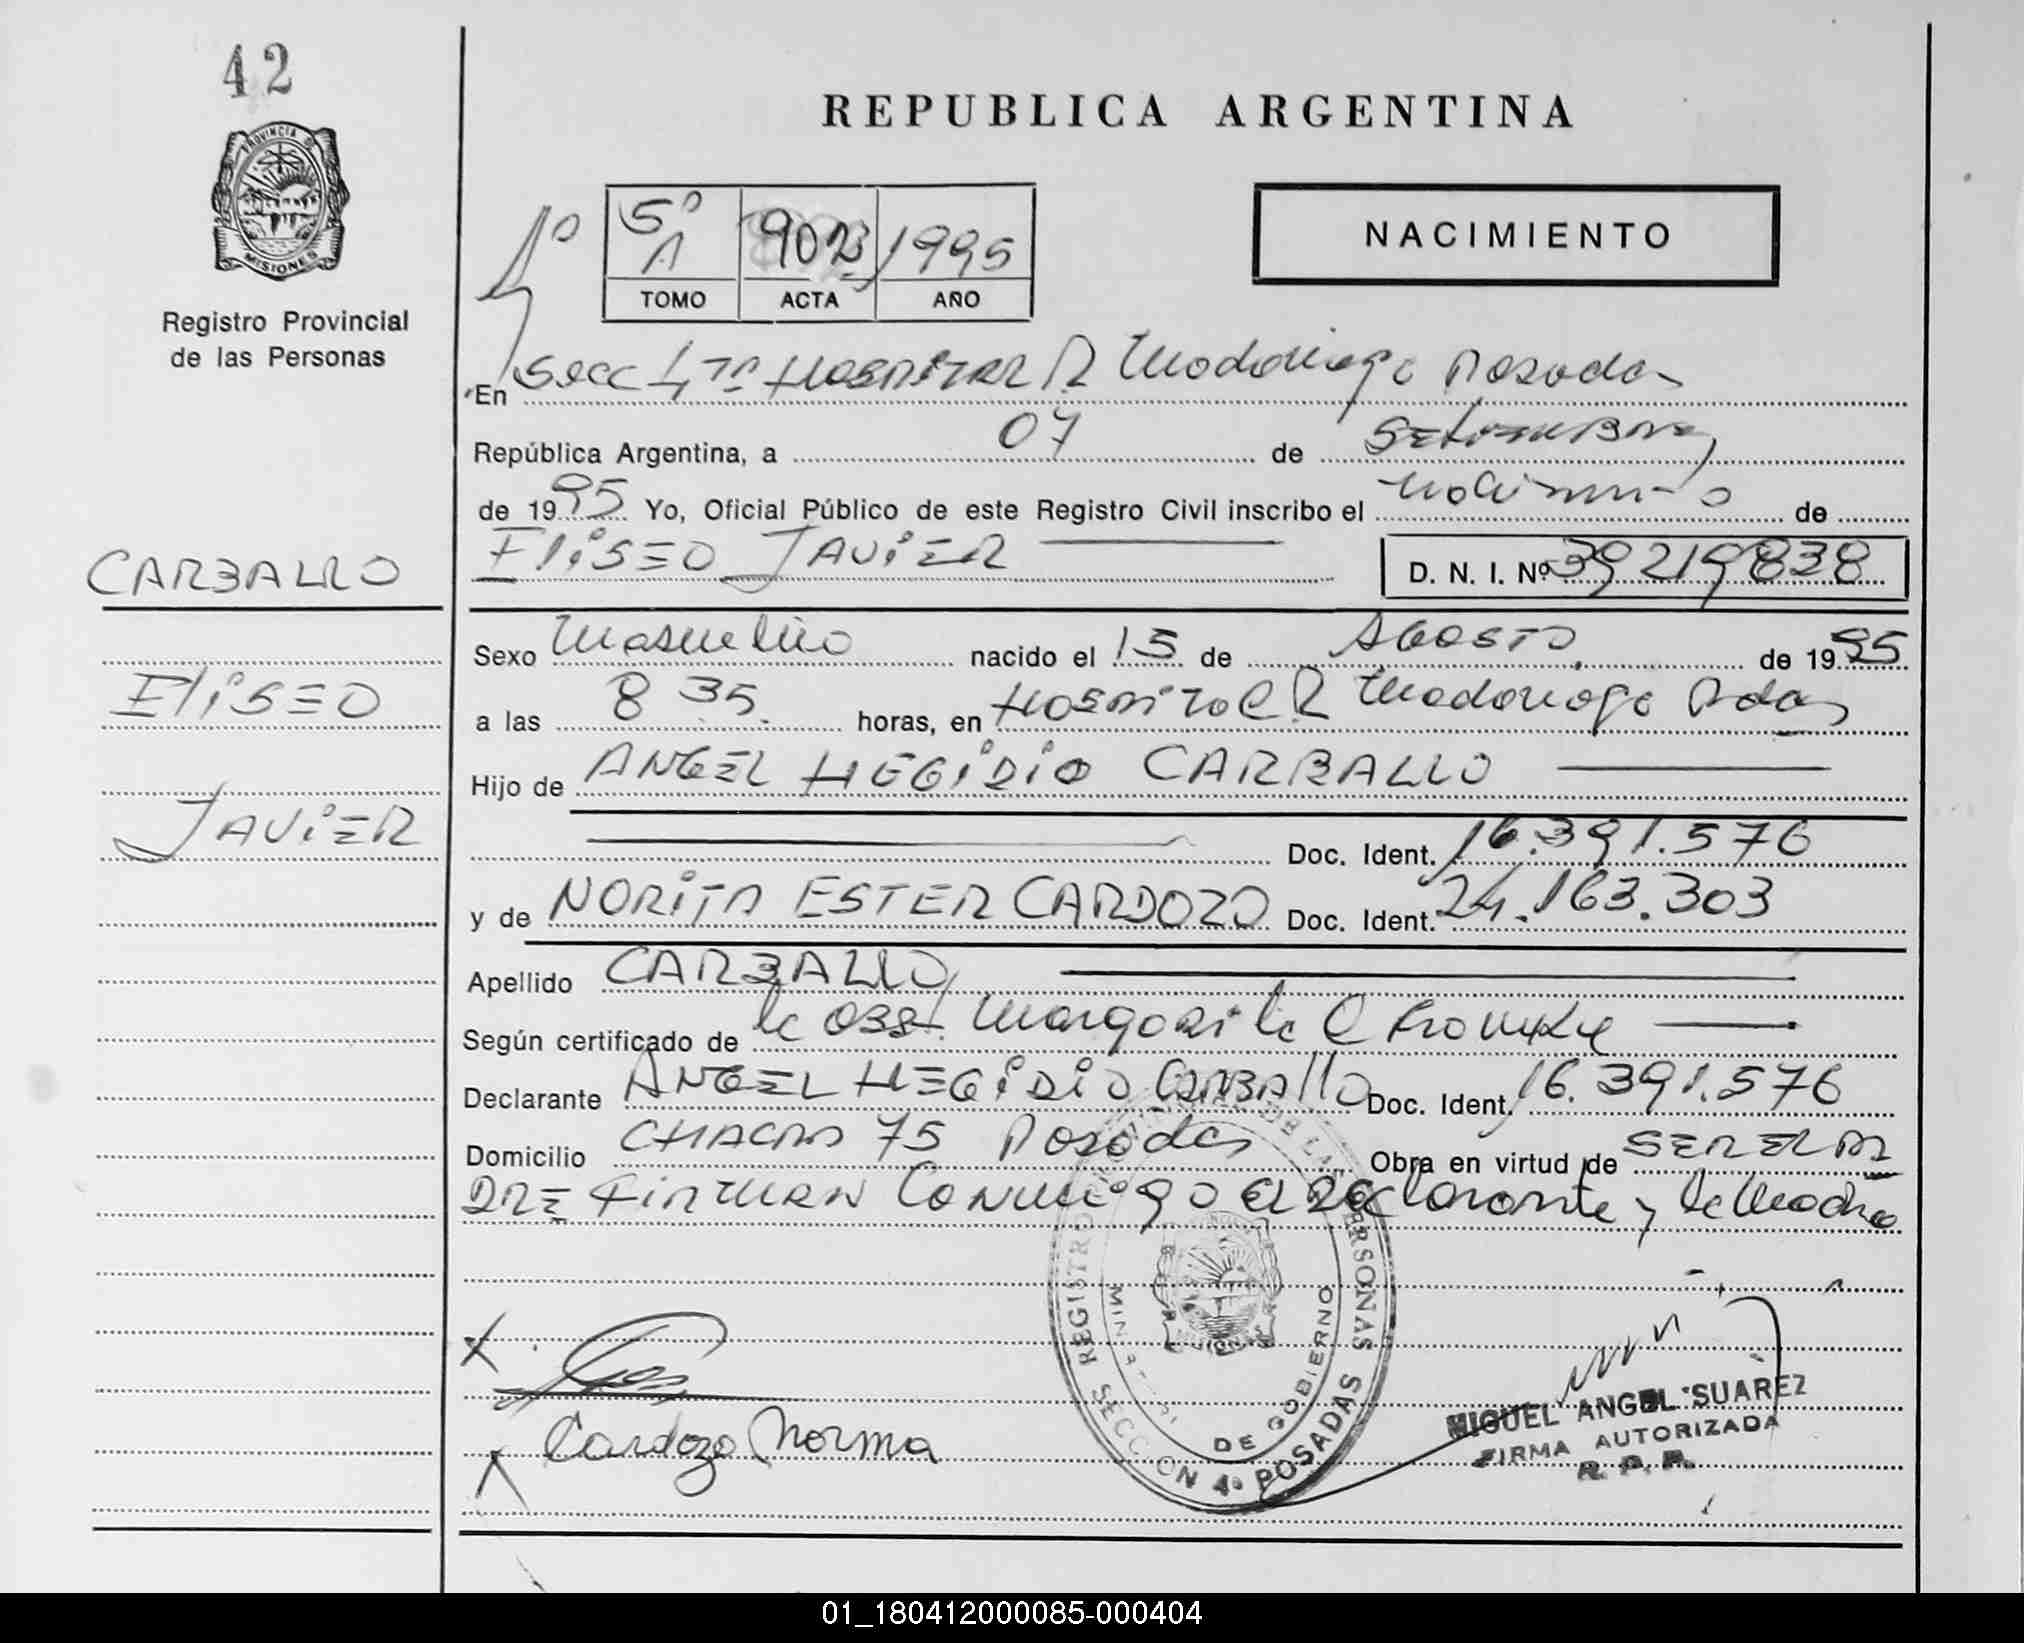 42
PROVINCIA DE
MISIONES
Registro Provincial
de las Personas
REPUBLICA ARGENTINA
NACIMIENTO
4º
5º A 1995
TOMO ACTA AÑO
En Secc 4ta Hospital R Madariaga Posadas
República Argentina, a 07 de Setiembre
de 1995 Yo, Oficial Público de este Registro Civil inscribo el nacimiento de
ELISEO JAVIER D. N. I. Nº 39219838
CARBALLO
ELISEO
JAVIER
Sexo Masculino nacido el 15 de AGOSTO de 1995
a las 8 35 horas, en Hospital R Madariaga Pdas
Hijo de ANGEL HEGIDIO CARBALLO
Doc. Ident. 16.391.576
y de NORITA ESTER CARDOZO Doc. Ident. 24.163.303
Apellido CARBALLO
Según certificado de la obst Margarita
Declarante ANGEL HEGIDIO CARBALLO Doc. Ident. 16.391.576
Domicilio CHACRA 75 Posadas Obra en virtud de SER EL PA
DRE FIRMAN Conmigo el declarante y la Madre
REGISTRO DE LAS PERSONAS
DE GOBIERNO
SECCION 4ª POSADAS
MISIONES
Cardozo Norma
MIGUEL ANGEL SUAREZ
FIRMA AUTORIZADA
R. P. P.
01_180412000085-000404